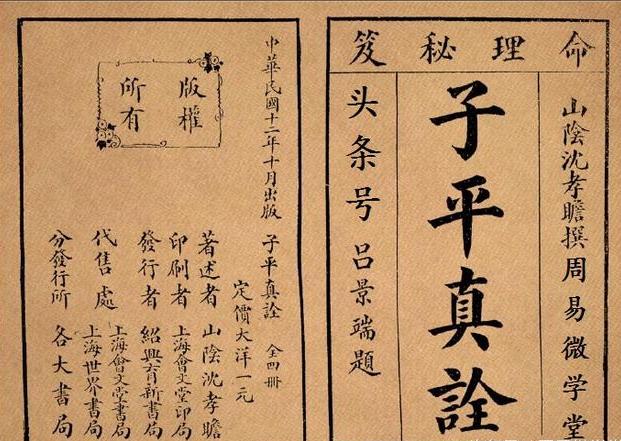 命理秘笈
山陰沈孝瞻撰周易微学堂
子平真詮
头条号吕景端题
中華民國十二年十月出版
子平真詮 全四冊
定價大洋一元
版權
所有
著述者 山陰沈孝瞻
印刷者 上海會文堂印局
發行者 紹興育新書局
代售處 上海會文堂書局
上海世界書局
分發行所 各大書局